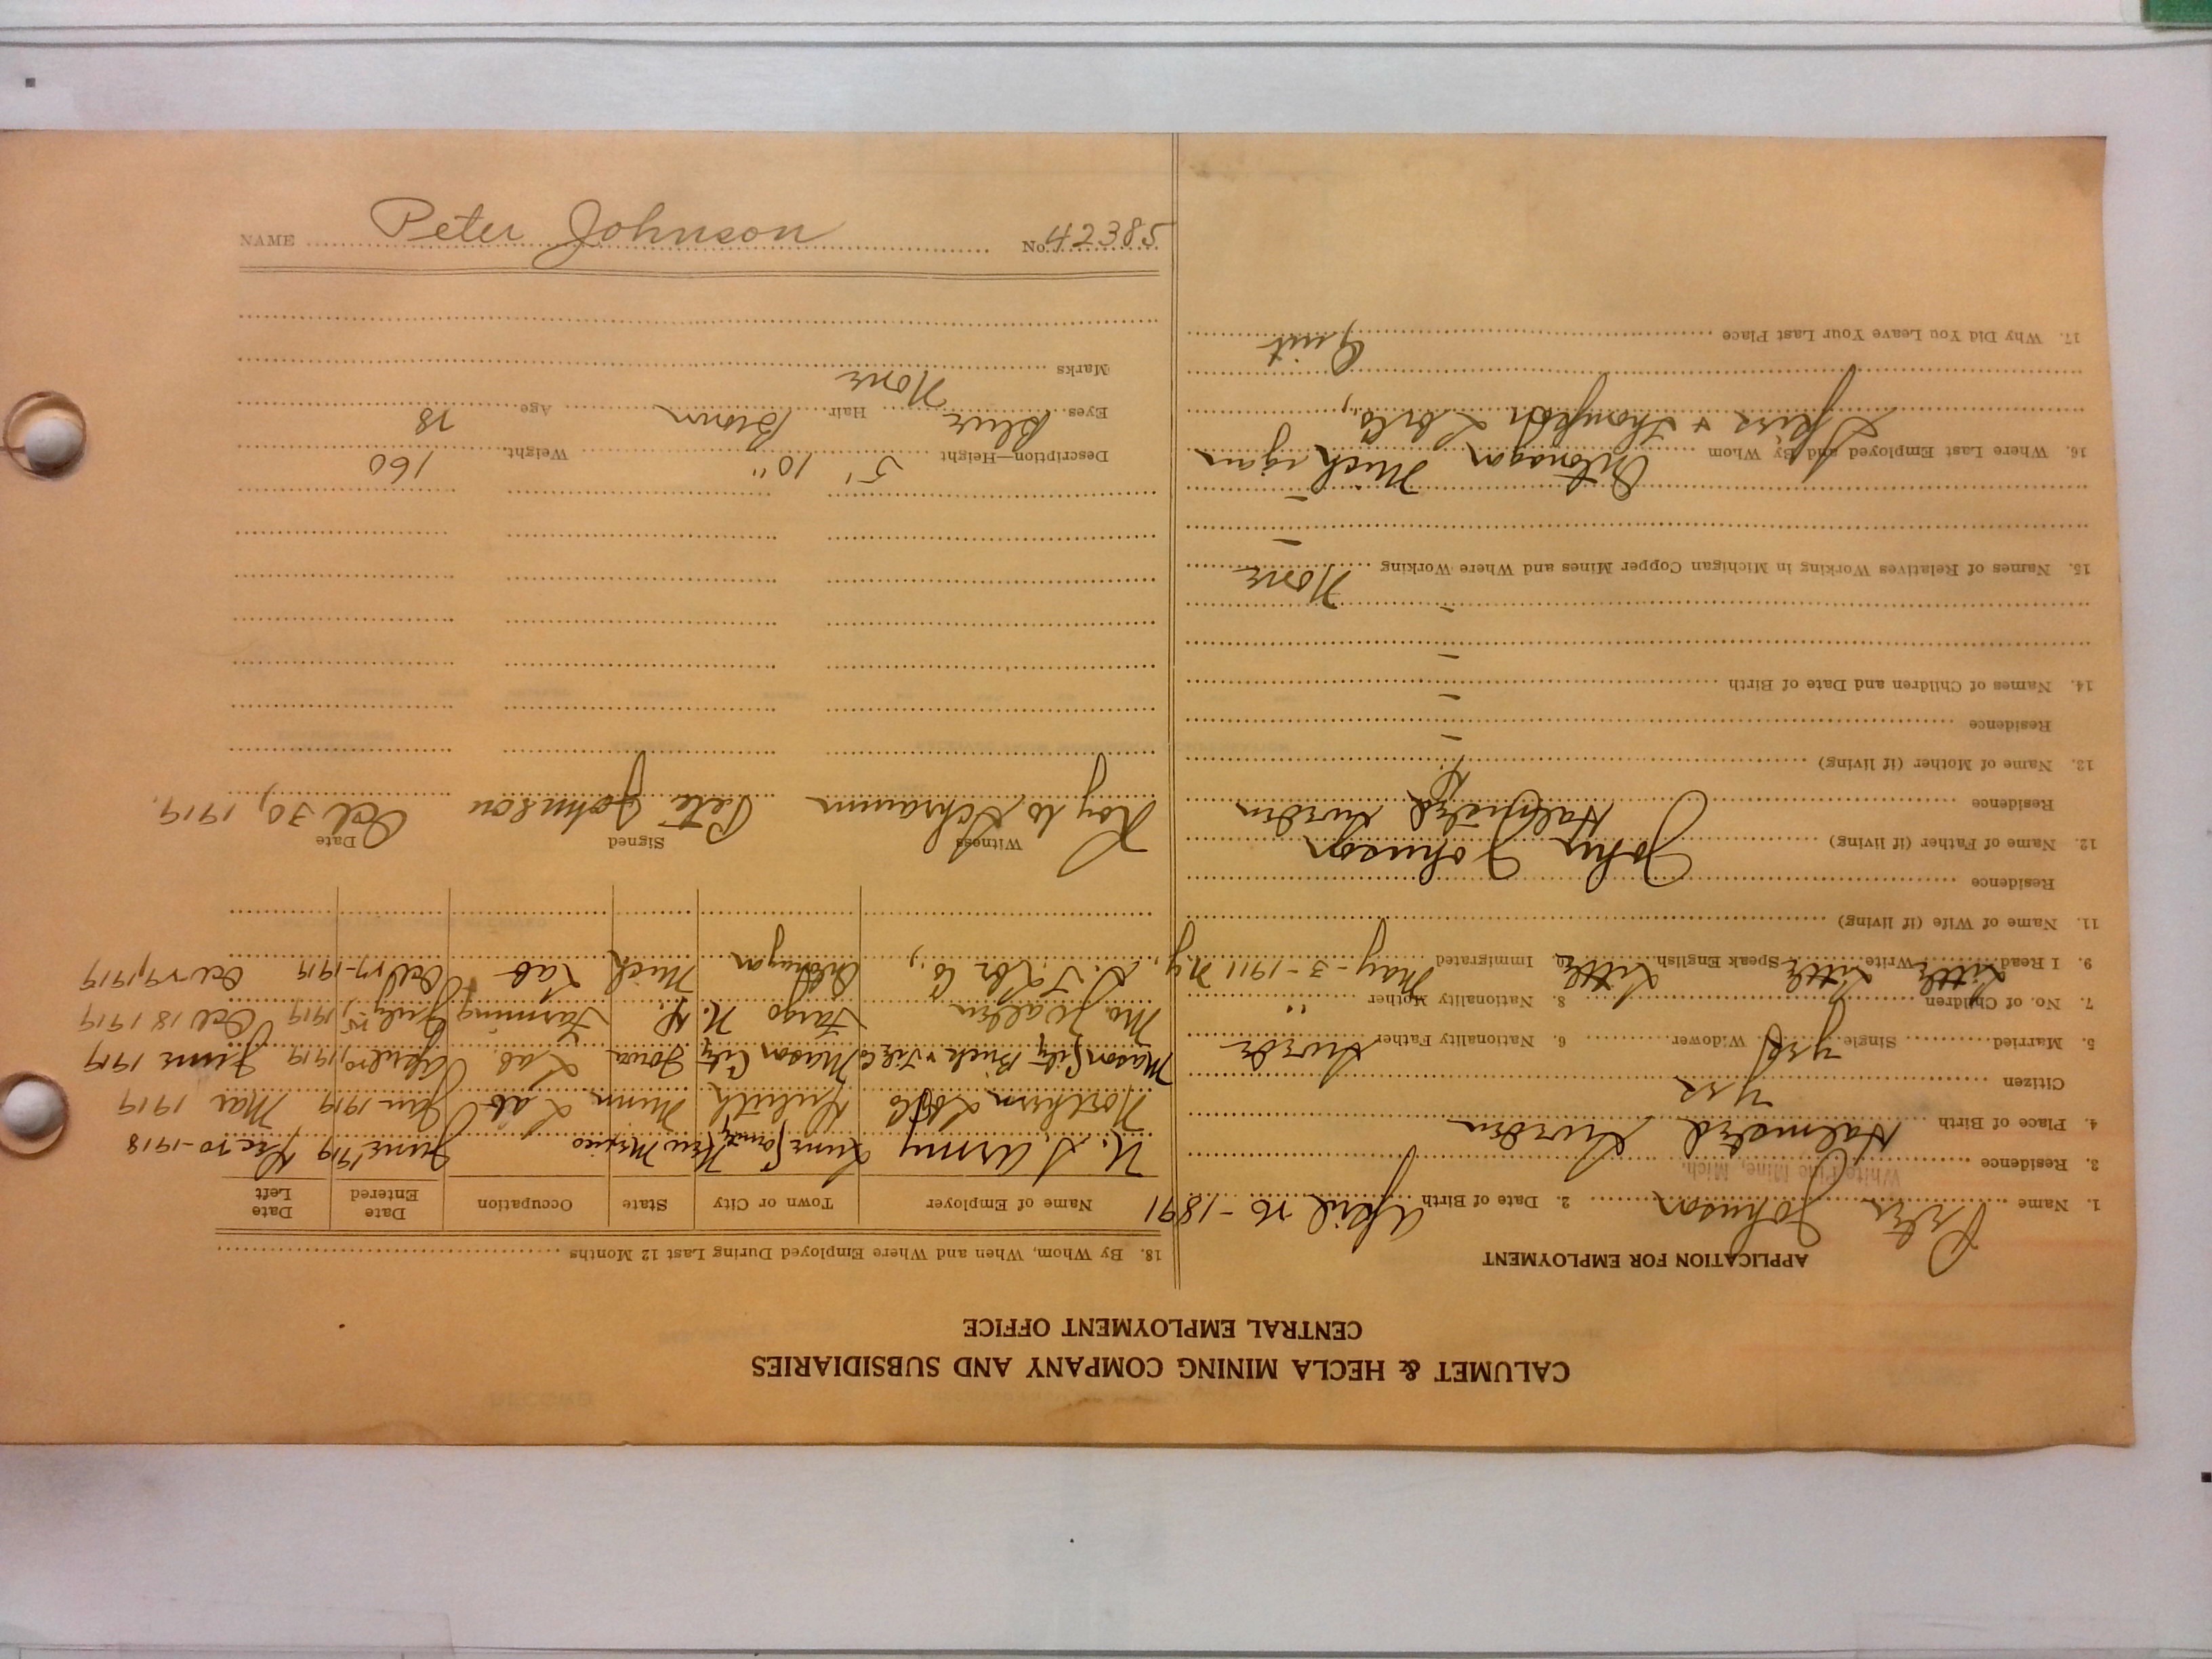 CALUMET & HECLA MINING COMPANY AND SUBSIDIARIES
CENTRAL EMPLOYMENT OFFICE
APPLICATION FOR EMPLOYMENT
1. Name Peter Johnson 2. Date of Birth April 26-1891
3. Residence White Pine Mine, Mich.
4. Place of Birth Halmsted Sweden
Citizen Yes
5. Married Single yes Widower 6. Nationality Father Swede
7. No. of Children 8. Nationality Mother "
9. I Read Little Write Little Speak English Little Immigrated May-3-1911 N.Y.
11. Name of Wife (if living)
Residence
12. Name of Father (if living) John Johnson
Residence Halmsted Sweden
13. Name of Mother (if living)
Residence -
14. Names of Children and Date of Birth -
-
-
15. Names of Relatives Working in Michigan Copper Mines and Where Working None
-
-
16. Where Last Employed and By Whom Ontonagon Michigan
17. Why Did You Leave Your Last Place Quit
18. By Whom, When and Where Employed During Last 12 Months
Name of Employer Town or City State Occupation Date Entered Date Left
U. S. Army County New Mexico June 1919 Dec 20-1918
Northern Duluth Minn Lab Jan-1919 Mar 1919
Mason City Brick & Tile Co Mason City Iowa Lab April 20, 1919 June 1919
Fargo N. D. Farming July 15, 1919 Oct 18 1919
Ontonagon Mich Lab Oct 27-1919 Oct 29, 1919
Witness Signed Date
Roy W. Schramm Pete Johnson Oct 30, 1919.
Description—Height 5' 10" Weight 160
Eyes Blue Hair Brown Age 28
Marks None
NAME Peter Johnson No. 42385